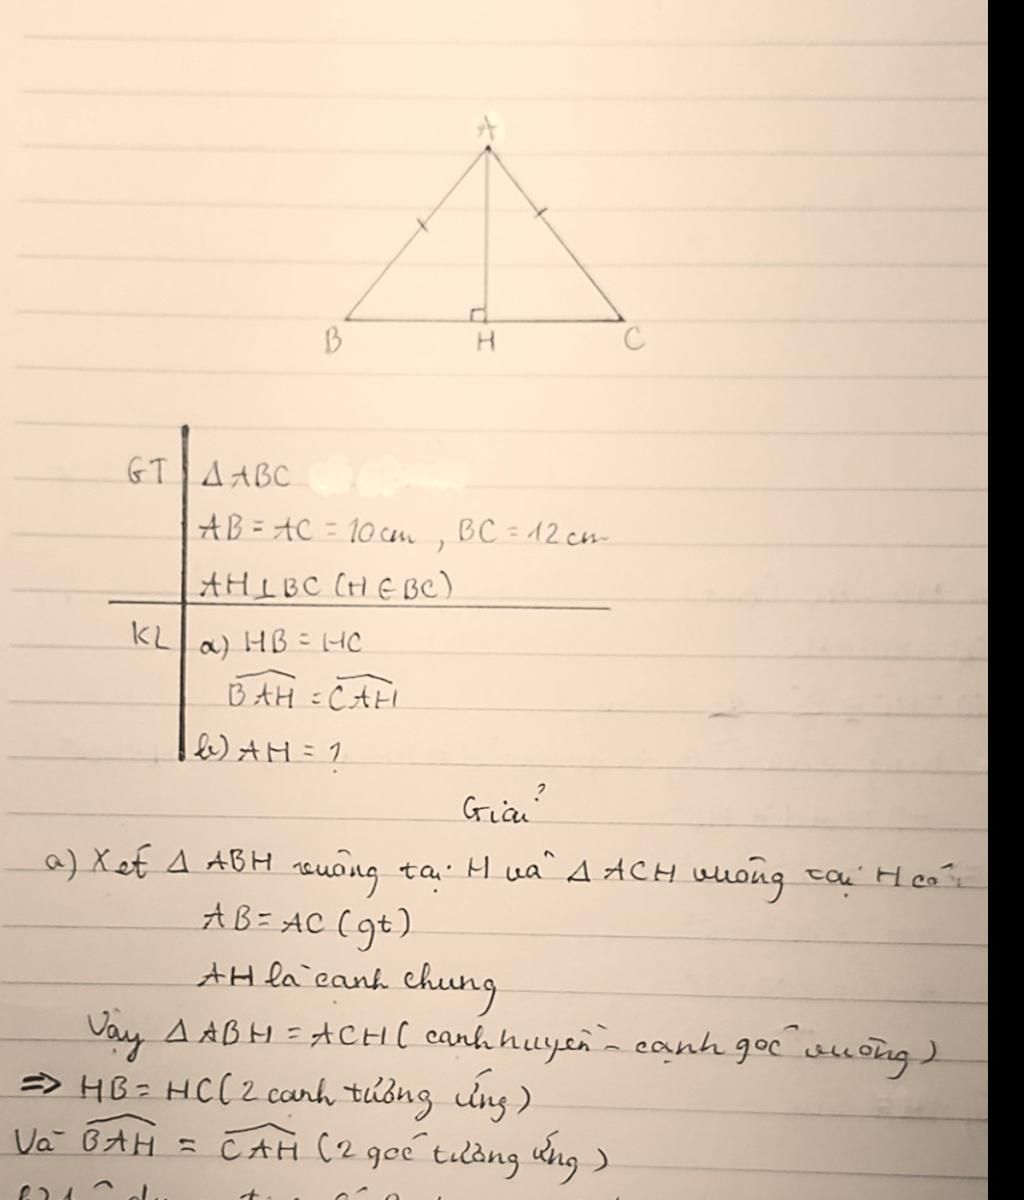 A
B H C
GT ΔABC
AB = AC = 10cm, BC = 12cm
AH⊥BC (H∈BC)
KL a) HB = HC
BAH = CAH
b) AH = ?
Giải
a) Xét Δ ABH vuông tại H và Δ ACH vuông tại H có:
AB = AC (gt)
AH là cạnh chung
Vậy Δ ABH = ACH (cạnh huyền - cạnh góc vuông)
=> HB = HC (2 cạnh tương ứng)
Và BAH = CAH (2 góc tương ứng)